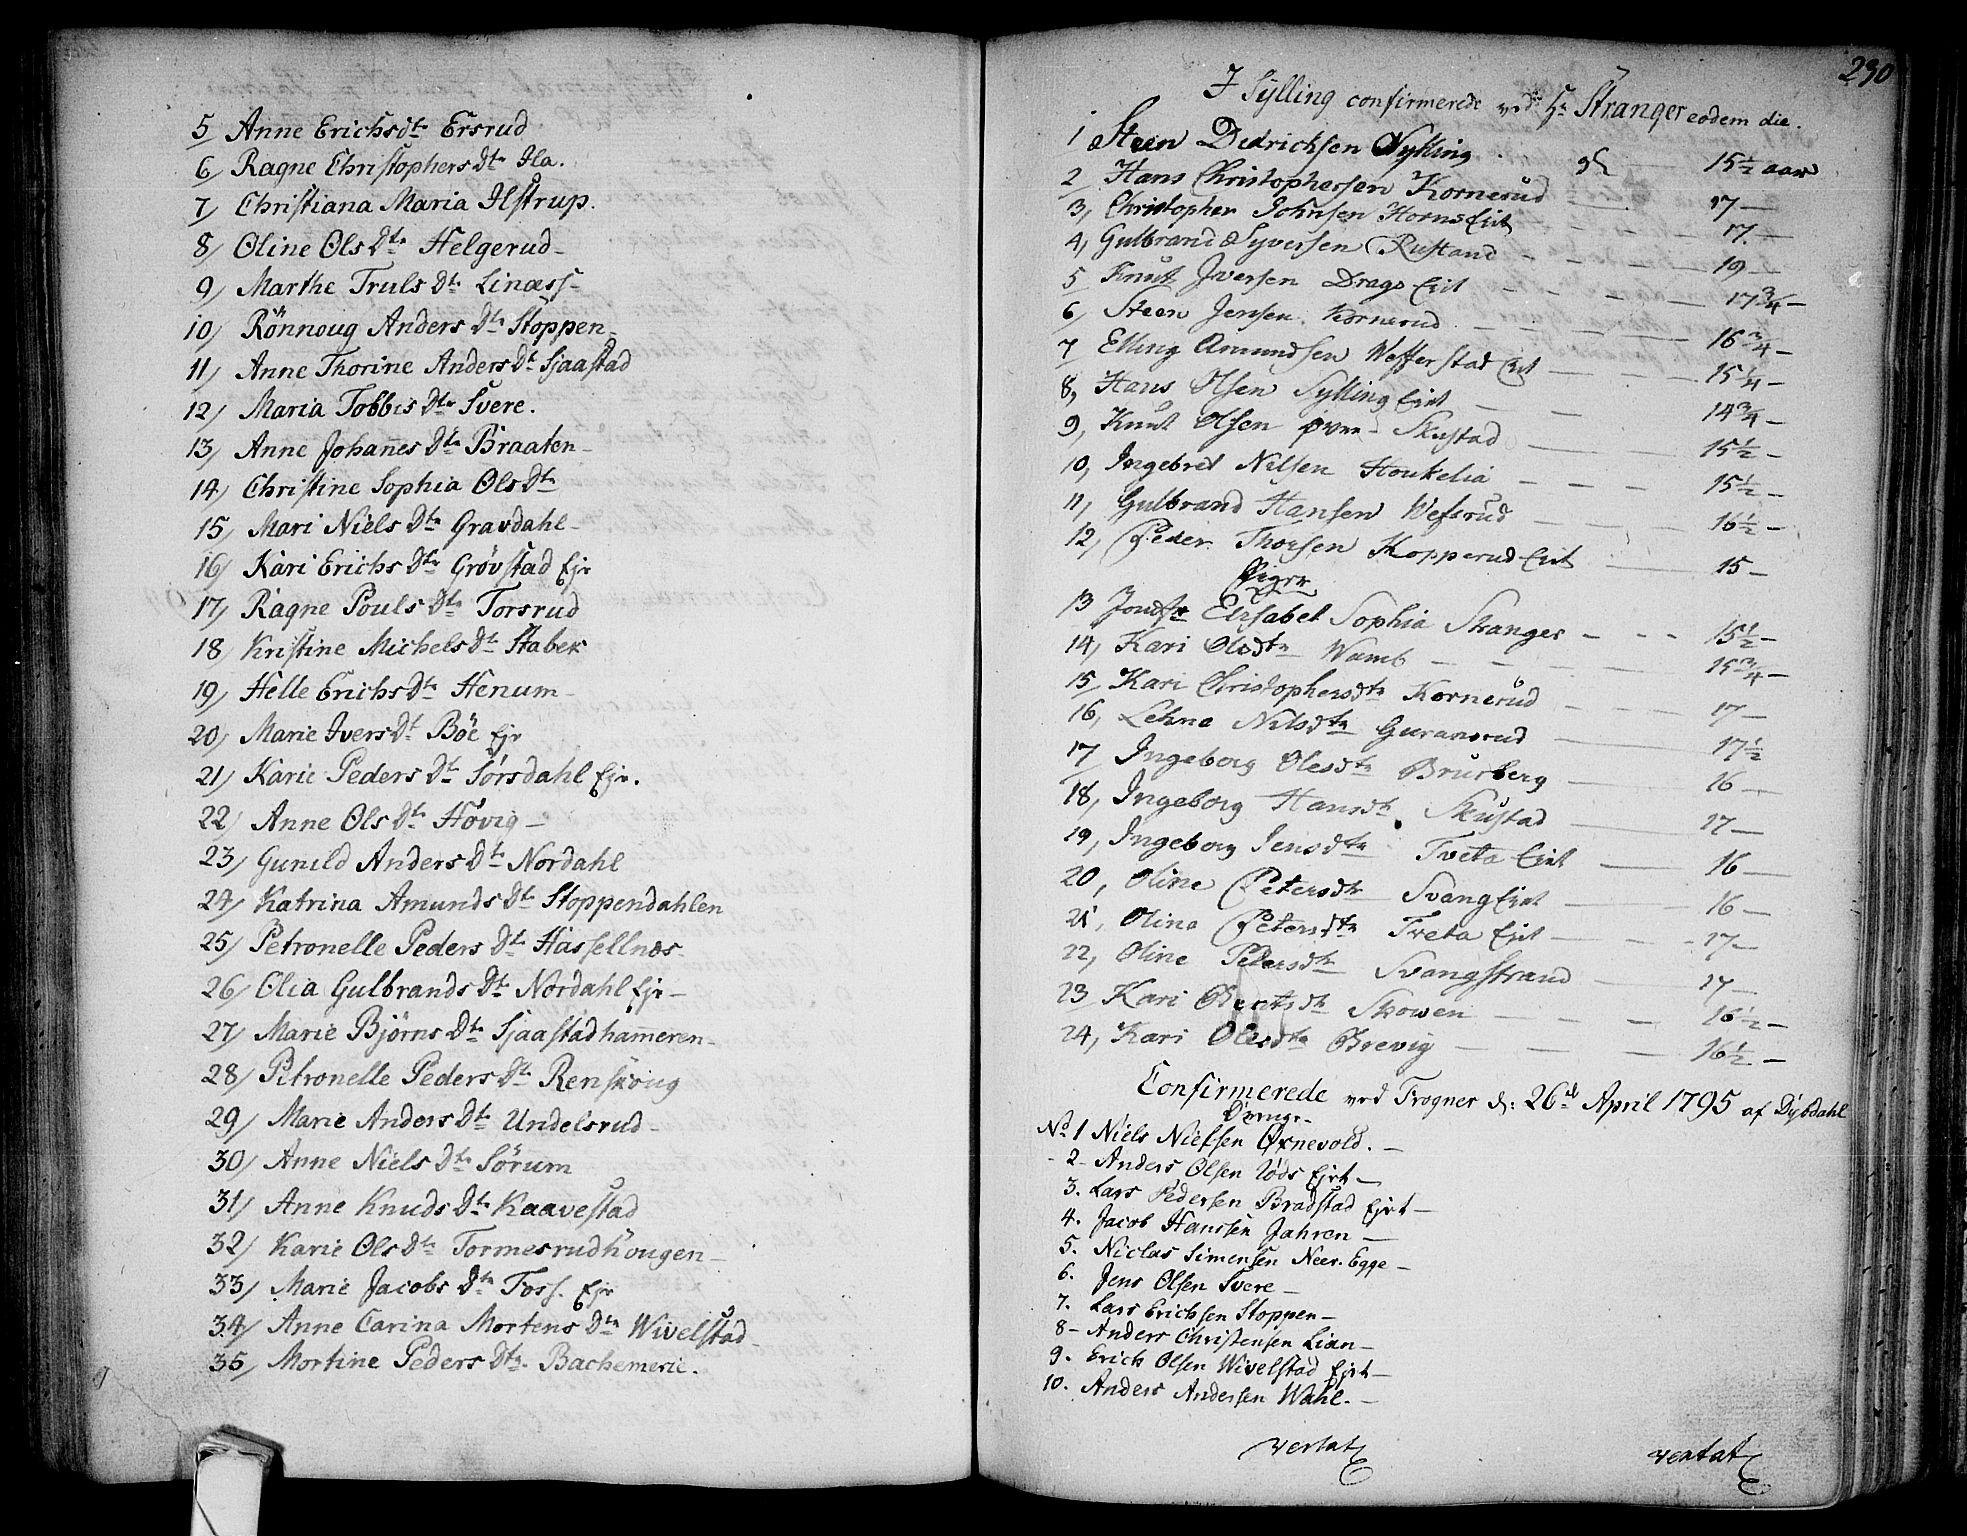 5 Anne Erichsdtr Ersrud
6/ Ragne Christophers Dtr Ila.
7/ Christiana Maria Ilstrup.
8/ Oline Ols Dtr Helgerud -
9/ Marthe Truls Dtr Linæss -
10/ Rönnoug Anders Dtr Stoppen -
11/ Anne Thorine Anders Dt Sjaastad
12/ Maria Tobbis Dtr Svere.
13/ Anne Johannes Dtr Braaten -
14/ Christine Sophia Ols Dtr
15/ Mari Niels Dtr Gravdahl -
16/ Kari Erichs Dtr Grövstad Ejr
17/ Ragne Pouls Dtr Torsrud
18/ Kristine Michels Dtr Stabek
19/ Helle Erichs Dtr Henum -
20/ Marie Ivers Dt Böe Ejr
21/ Karie Peders Dtr Sörsdahl Ejr.
22/ Anne Ols Dtr Hövig -
23/ Gunild Anders Dtr Nordahl
24/ Katrina Amunds Dtr Stoppendahlen
25/ Petronelle Peders Dtr Hassellnæs -
26/ Olia Gulbrands Dtr Nordahl Ejr -
27/ Marie Björns Dtr Sjaastadhameren -
28/ Petronelle Peders Dtr Renskoug
29/ Marie Anders Dtr Undelsrud -
30/ Anne Niels Dtr Sörum
31/ Anne Knuds Dtr Kaavestad
32/ Karie Ols Dtr Tormesrudhougen -
33/ Marie Jacobs Dtr Foss. Ejr
34/ Anne Carina Mortens Dtr Wivelstad -
35/ Mortine Peders Dtr. Bachemerie.
230
I Sylling confirmerede ved Hr Stranger eodem die.
1 Steen Didrichsen Sylling . 15½ aar
2 Hans Christophersen Kornerud 17 -
3, Christopher Johnsen Horns Eiet 17. -
4, Gulbrand Syversen Rustand - 19 -
5 Knut Iversen Drags Eiet - 17¾ -
6, Steen Jensen Kornerud - 16¾ -
7 Elling Amundsen Wefferstad Eiet - 15¼ -
8, Hans Olsen Sylling Eiet - 14¾ -
9, Knut Olsen øvre Skustad - 15½ -
10, Ingebret Nilsen Houkelia - 15½ -
11, Gulbrand Hansen Wefsrud - 16½ -
12, Peder Thorsen Kopperud Eiet - 15 -
Piger
13 Jomfr Elisabet Sophia Stranger - 15½ -
14, Kari Olsdtr Wamb - 15¾ -
15 Kari Christophersdtr Kornerud - 17 -
16, Lehne Nilsdtr Guransrud - 17½
17 Ingeborg Olesdtr Brusberg - 16 -
18, Ingeborg Hansdtr Skustad - 17 -
19, Ingeborg Jensdtr Tveta Eiet - 16 -
20, Oline Petersdtr Svang Eiet - 16 -
21, Olina Petersdtr Tveta Eiet - 17 -
22, Oline Petersdtr Svangstrand - 17 -
23 Kari Berntsdtr Skowen - 16½ -
24, Kari Olesdtr Brevig - 16½ -
Confirmerede ved Frogner d: 26de April 1795 af Dybdahl
Drenge.
No 1 Niels Nielsen Ørnevold. -
2 - Anders Olsen Töds Ejrt -
3. Lars Pedersen Bradstad Ejrt -
4. Jacob Hanssen Jahren -
5. Niclas Simensen Neer. Egge -
6. Jens Olsen Svere -
7. Lars Erichsen Stoppen -
8 - Anders Christensen Lian -
9. Erich Olsen Wivelstad Ejrt -
10. Anders Andersen Wahl. -
vertat
vertat